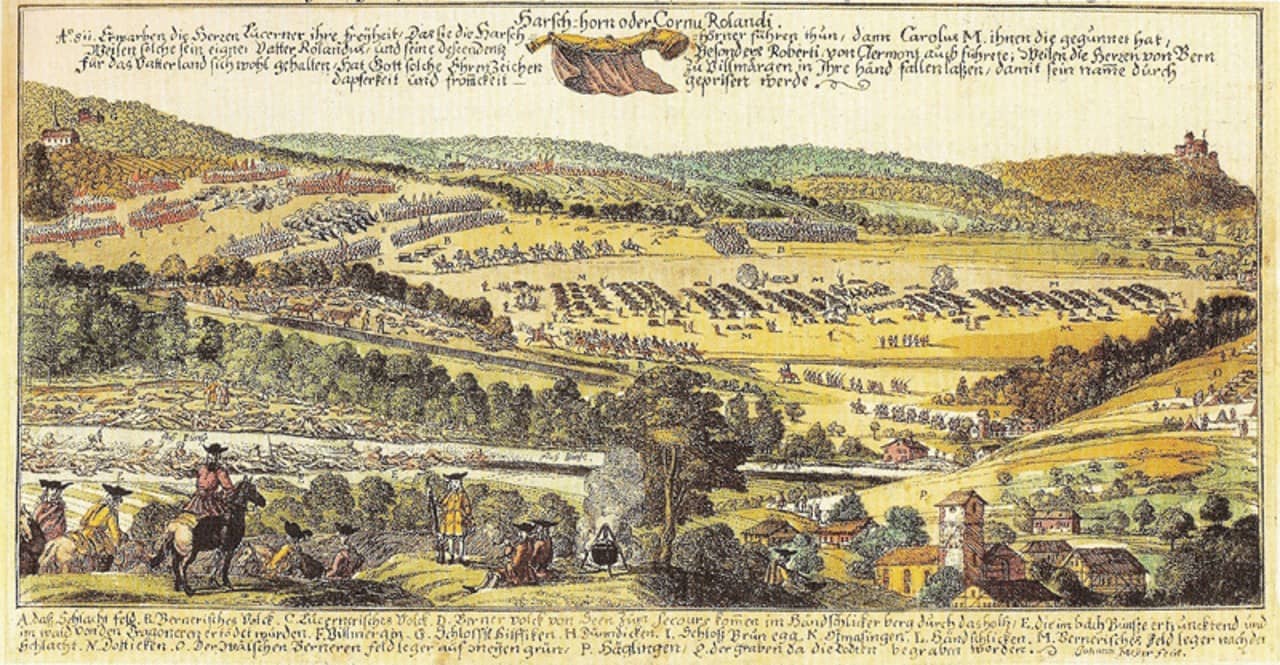 Harsch-horn oder Cornu Rolandi.
Aō. 811. Erwarben die Herren Lucerner ihre freÿheit, Das sie die Harsch-
hörner führen thün, dann Carolus M. ihnen die gegünnet hat,
Weilen solche sein eigner Vatter Rolandus, und seine descendenz
Besonders Roberti, von Clermont auch führete; Weilen die Herren von Bern
für das Vatterland sich wohl gehalten, Hat Gott solche Ehren Zeichen
zu Villmargen in Ihre hand fallen laßen, damit sein name durch
dapferkeit und fromkeit
geprisen werde.
A. das Schlacht feld. B. Bernerisches Volck. C. Lucernerisches Volck. D. Berner volck von Seen zum Secours komen im Händschlicker berg durch das holtz, E. die im bach Büntze ertrunckend und
im wald von den Dragoneren ertödet würden. F. Villmergen. G. Schloss Hilfiken. H. Dinticken. I. Schloß Brün egg. K. Otmasingen. L. Händschlicken. M. Bernerisches feld leger nach der
Schlacht. N. Dotticken. O. Der Wälschen Berneren feld leger auf meÿen grün, P. Häglingen, Q. der graben da die todten begraben worden.
Johann Meÿer fecit.